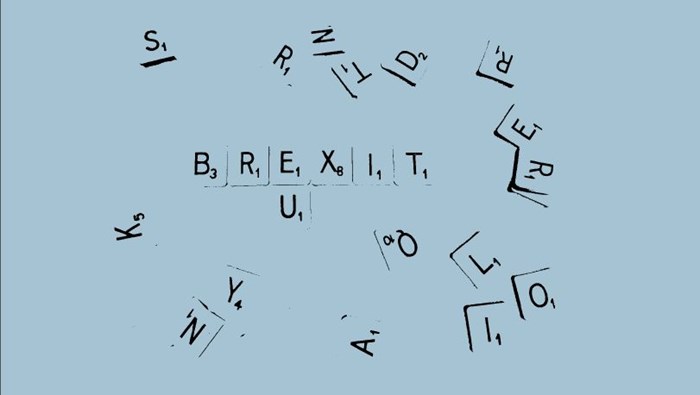 S₁
R₁
N
T₁
D₂
R₁
E₁
R₁
B₃ R₁ E₁ X₈ I₁ T₁
U₁
K₅
L₁
O₁
Y₄
N₁
A₁
I₁